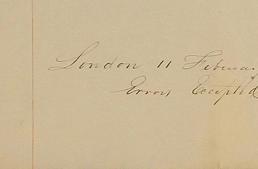 London 11 Februa
Errors Excepted